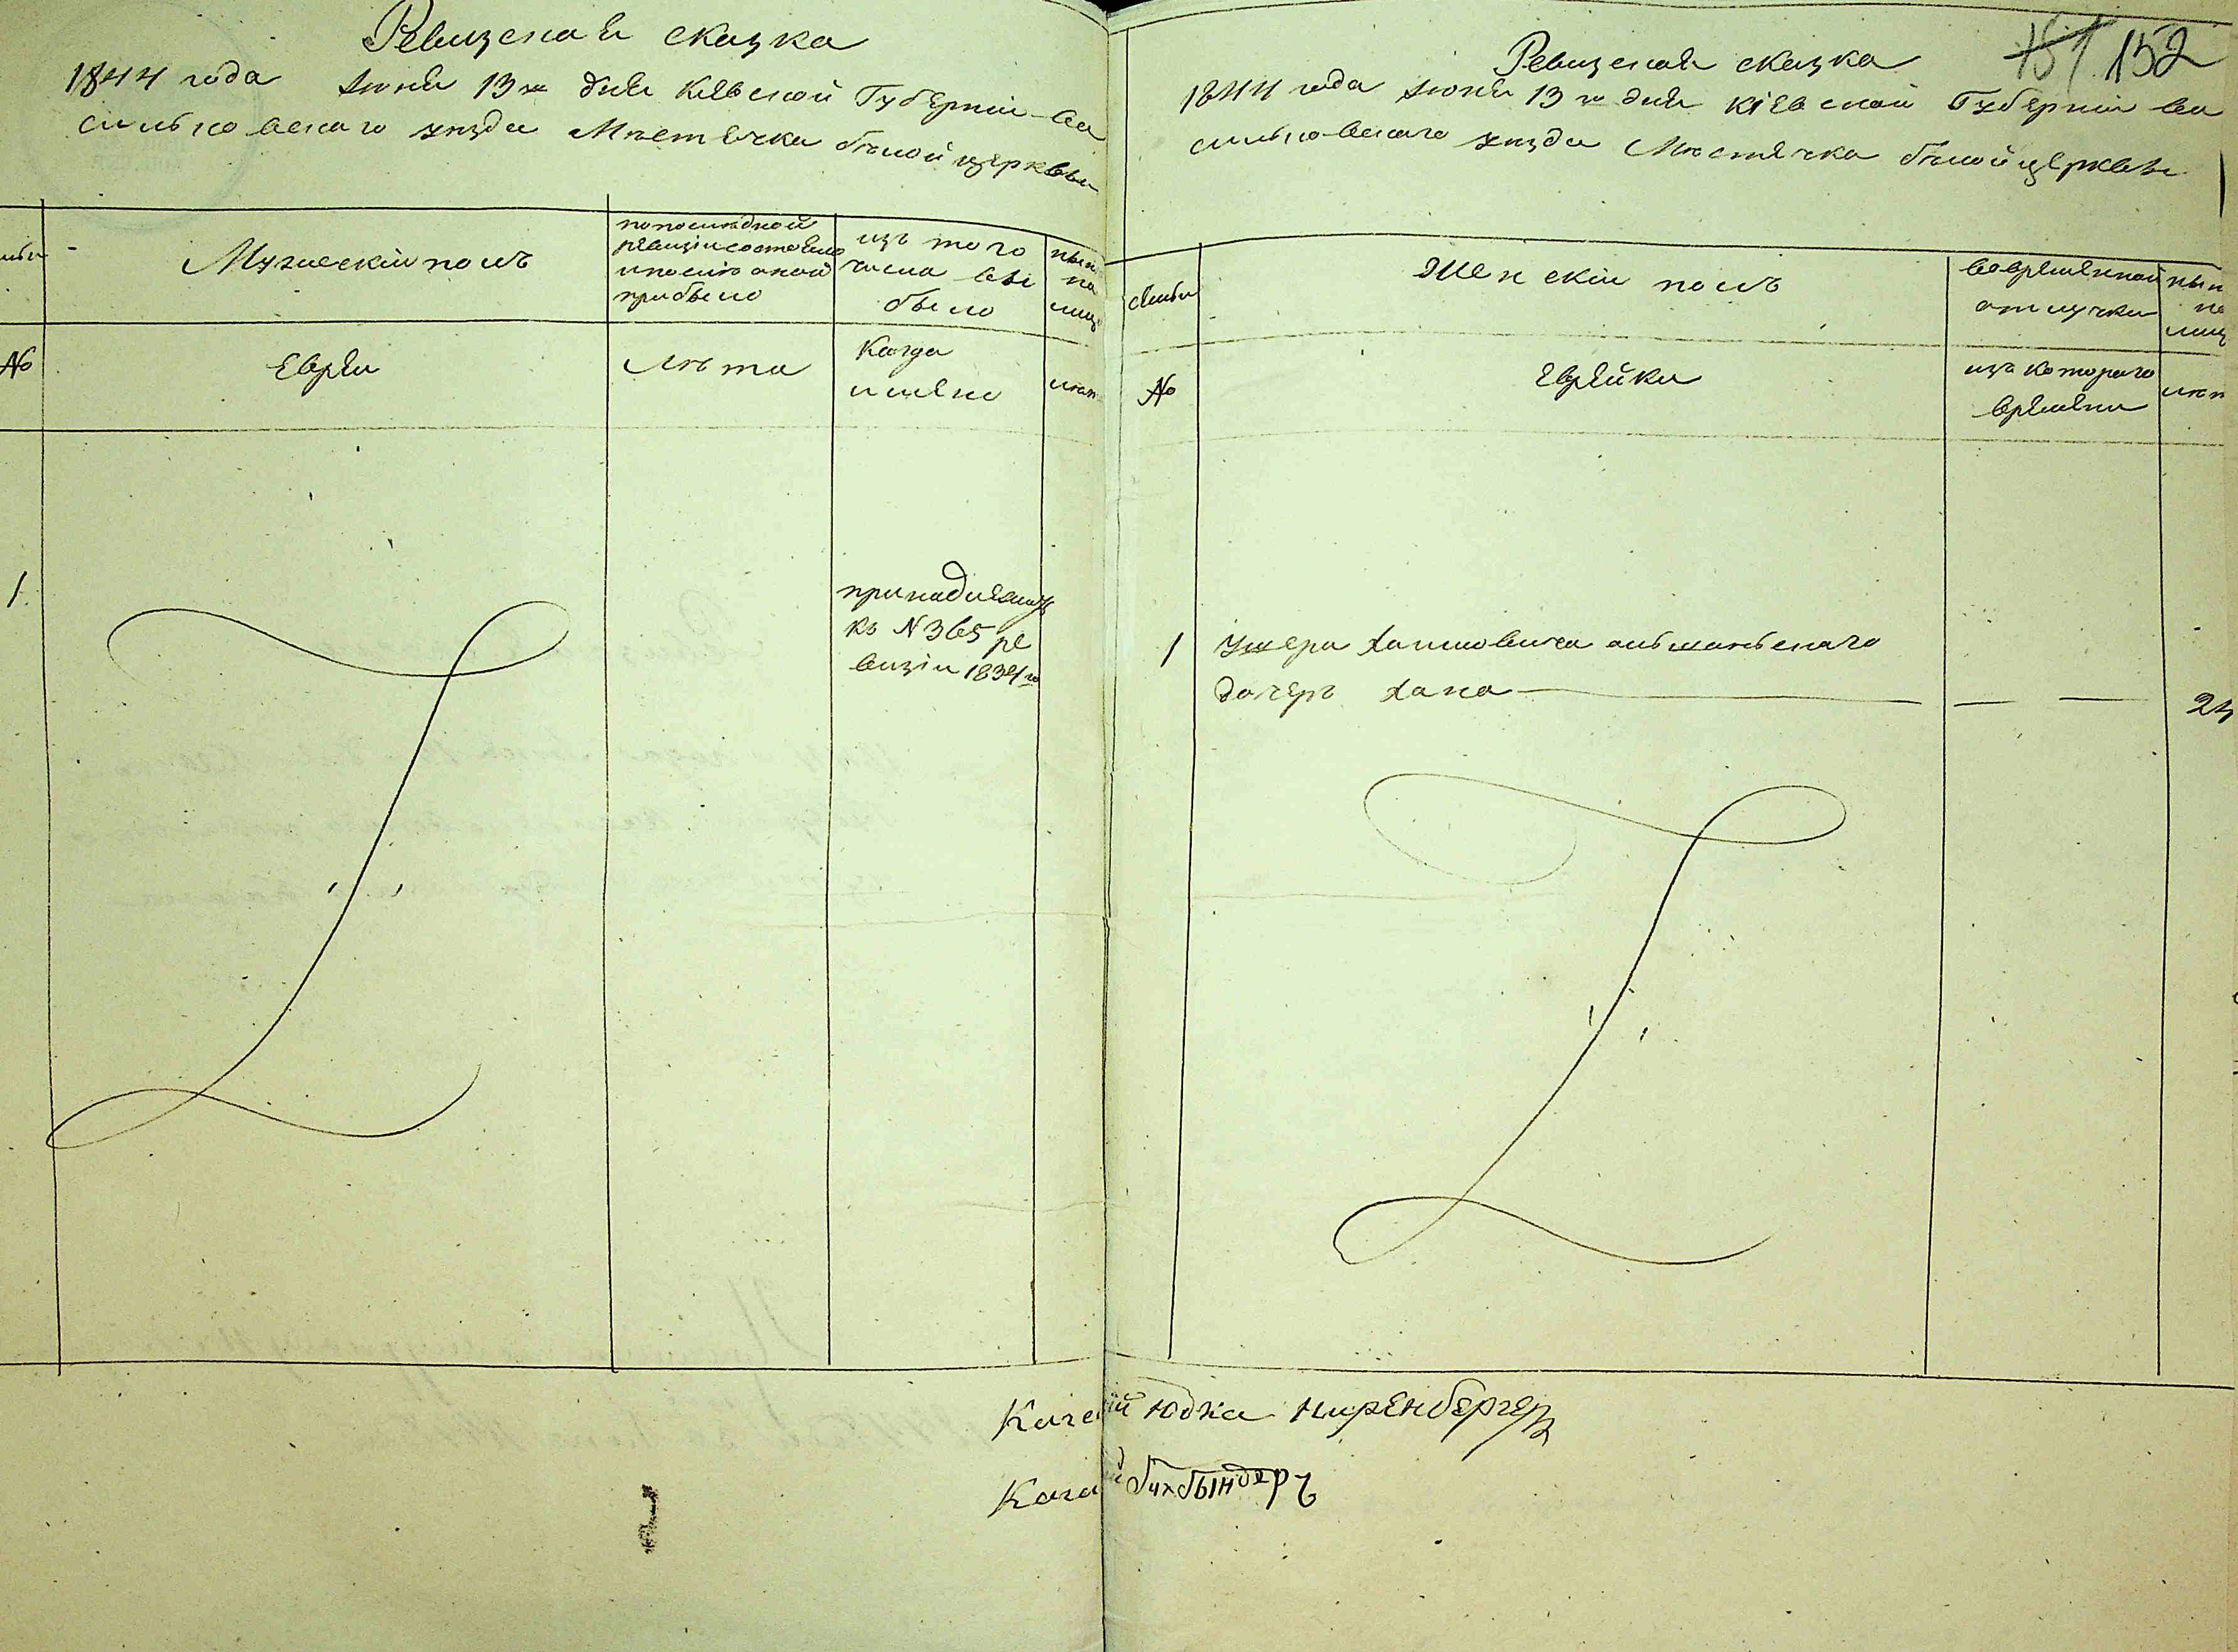 Ревизская сказка
1844 года Июня 13 го дня Киевской Губернiи ва
сильковскаго уезда Местечка белой церкви
мьи
Мужескiй полъ
по последной
ревизiи состояло
и после оной
прибыло
изъ того
числа вы
было
ныне
на
лицо
№
Евреи
Лета
Когда
имено
лет
1
принадлежащ
къ N 365 ре
визiи 1834 го
151 152
Ревизская сказка
1844 года Июня 13 го дня Кiевской Губернiи ва
сильковскаго уезда Местечка белой церкви
семьи
Женскiй полъ
во временной
отлучки
ныне
на
лиц
№
Еврейки
изъ котораго
времени
лет
1 Ушера Хаимовича ольшанскаго
дочеръ Хана — — — 24
Кага й Юдка Ниренбергеръ
Кага й бихбындеръ